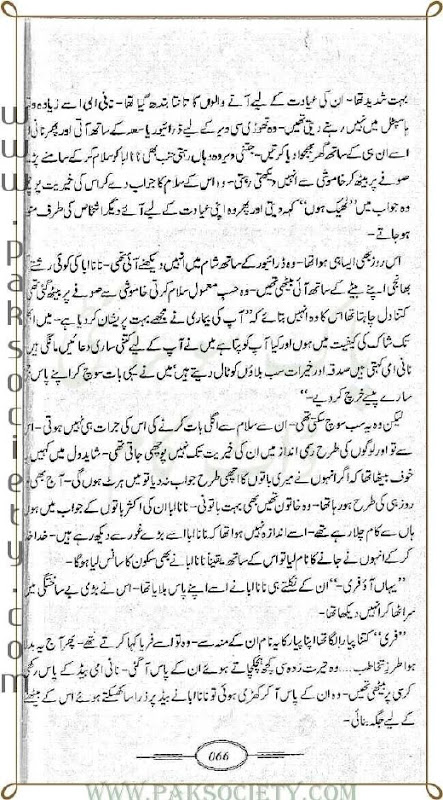 بہت شدید تھا۔ ان کی عیادت کے لیے آنے والوں کا تانتا بندھ گیا تھا۔ نانی امی اسے زیادہ و
ہاسپٹل میں نہیں رہنے دیتی تھیں۔ وہ تھوڑی سی دیر کے لیے ڈرائیور یا سعد کے ساتھ آتی اور پھر نانی ا
اسے ان ہی کے ساتھ گھر بھجوا دیا کرتیں۔ جتنی دیر وہ وہاں رہتی جب بھی نانا ابا کو سلام کر کے سامنے پڑ
صوفے پر بیٹھ کر خاموشی سے انہیں دیکھتی رہتی۔ وہ اس کے سلام کا جواب دے کر اس کی خیریت پو
وہ جواب میں "ٹھیک ہوں" کہہ دیتی اور پھر وہ اپنی عیادت کے لیے آئے دیگر اشخاص کی طرف متو
ہو جاتے۔
اس روز بھی ایسا ہی ہوا تھا۔ وہ ڈرائیور کے ساتھ شام میں انہیں دیکھنے آئی تھی۔ نانا ابا کی کوئی رشتے
بھانجی اپنے بیٹے کے ساتھ آئی بیٹھی تھیں۔ وہ حسب معمول سلام کرتی خاموشی سے صوفے پر بیٹھ گئی تھی
کتنا دل چاہتا تھا اس کا وہ انہیں بتائے کہ "آپ کی بیماری نے مجھے بہت پریشان کر دیا ہے۔ میں ا
تک شاک کی کیفیت میں ہوں اور کیا آپ کو پتا ہے میں نے آپ کے لیے کتنی ساری دعائیں مانگی ہیں
نانی امی کہتی ہیں صدقہ اور خیرات سب بلاؤں کو ٹال دیتے ہیں میں نے یہی بات سوچ کر اپنے پاس
سارے پیسے خرچ کر دیے۔"
لیکن وہ یہ سب سوچ سکتی تھی۔ ان سے سلام سے اگلی بات کرنے کی اس کی جرات ہی نہیں ہوتی۔ اس
سے تو اور لوگوں کی طرح رسمی انداز میں ان کی خیریت تک نہیں پوچھی جاتی تھی۔ شاید دل میں کہیں
خوف بیٹھا تھا کہ اگر انہوں نے میری باتوں کا اچھی طرح جواب نہ دیا تو میں ہرٹ ہوں گی۔ آج بھی
روز ہی کی طرح ہو رہا تھا۔ وہ خاتون تھیں بھی بہت باتونی۔ نانا ابا ان کی اکثر باتوں کے جواب میں ہوں
ہاں سے کام چلا رہے تھے۔ اسے اندازہ نہیں ہوا تھا کہ نانا ابا اسے بڑے غور سے دیکھ رہے ہیں۔ خدا خدا
کر کے انہوں نے جانے کا نام لیا تو اس کے ساتھ یقیناً نانا ابا نے بھی سکون کا سانس لیا ہو گا۔
"یہاں آؤ فری۔" ان کے نکلتے ہی نانا ابا نے اسے اپنے پاس بلایا تھا۔ اس نے بڑی بے ساختگی میں
سر اٹھا کر انہیں دیکھا تھا۔
"فری" کتنا پیارا لگا تھا اپنا پیار کا یہ نام ان کے منہ سے۔ وہ تو اسے فریا کہا کرتے تھے۔ پھر آج یہ بدلا
ہوا طرز تخاطب.... وہ حیرت زدہ سی کچھ ہچکچاتے ہوئے ان کے پاس آ گئی۔ نانی امی بیڈ کے پاس رکھی
کرسی پر بیٹھی تھیں۔ وہ ان کے پاس آ کر کھڑی ہوئی تو نانا ابا نے بیڈ پر ذرا سا کھسکتے ہوئے اس کے بیٹھنے
کے لیے جگہ بنائی۔
066
www.paksociety.com
WWW.PAKSOCIETY.COM